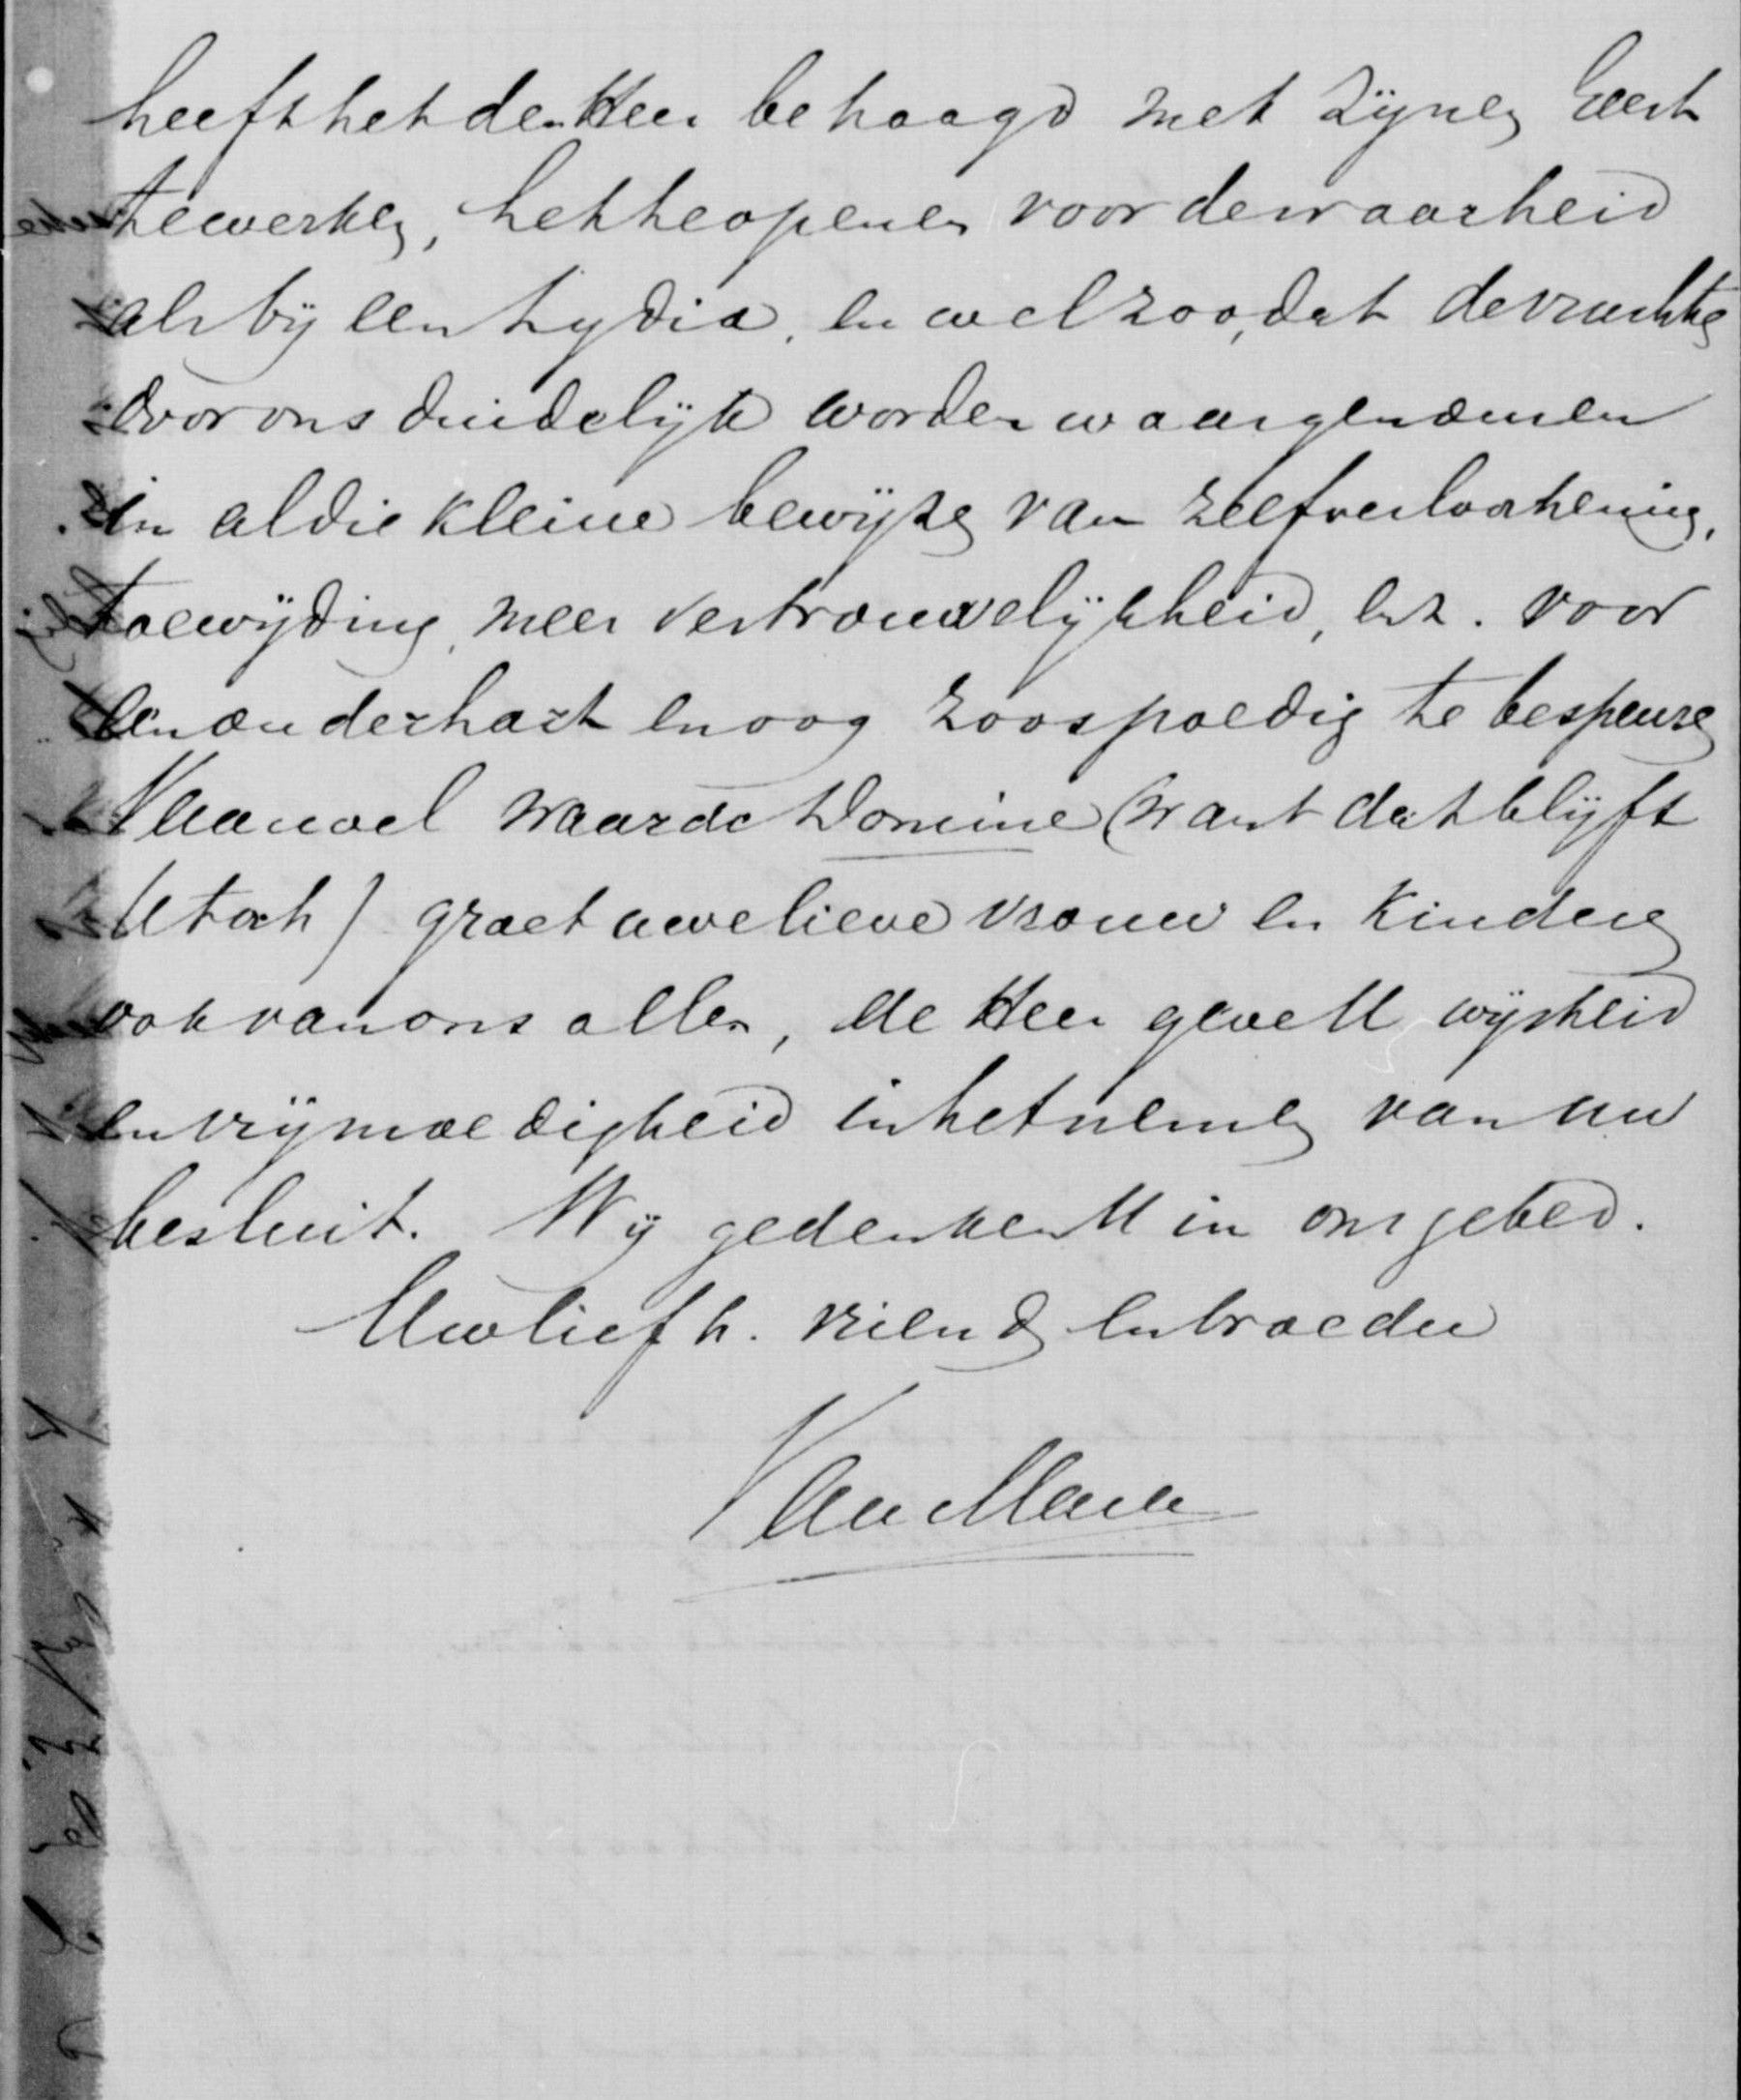 heeft het den Heer behaagd met Zijnen Geest
te werken, het te openen voor de waarheid
als bij een Lydia, en wel zoo, dat de vruchten
door ons duidelijk worden waargenomen
in al die kleine bewijzen van zelfverloochening,
toewijding, meer vertrouwelijkheid, enz. voor
een ouderhart en oog zoo spoedig te bespeuren
Vaarwel waarde Domine (want dat blijft
U toch) groet uwe lieve vrouw en kinderen
ook van ons allen, de Heer geve U wijsheid
en vrijmoedigheid in het nemen van uw
besluit. Wij gedenken U in ons gebed.
Uw liefh. vriend en broeder